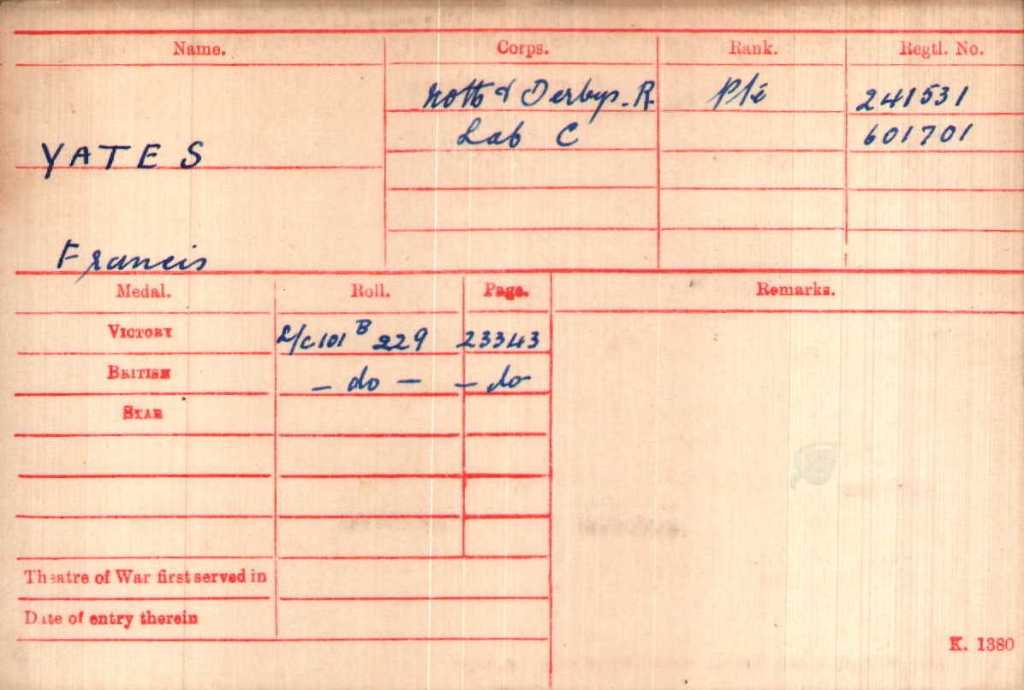 Name. Corps. Rank. Regtl. No.
Notts & Derbys. R. Pte 241531
Lab C 601701
YATES
Francis
Medal. Roll. Page. Remarks.
VICTORY L/C 101 B 229 23343
BRITISH - do - - do
STAR
Theatre of War first served in
Date of entry therein
K. 1380